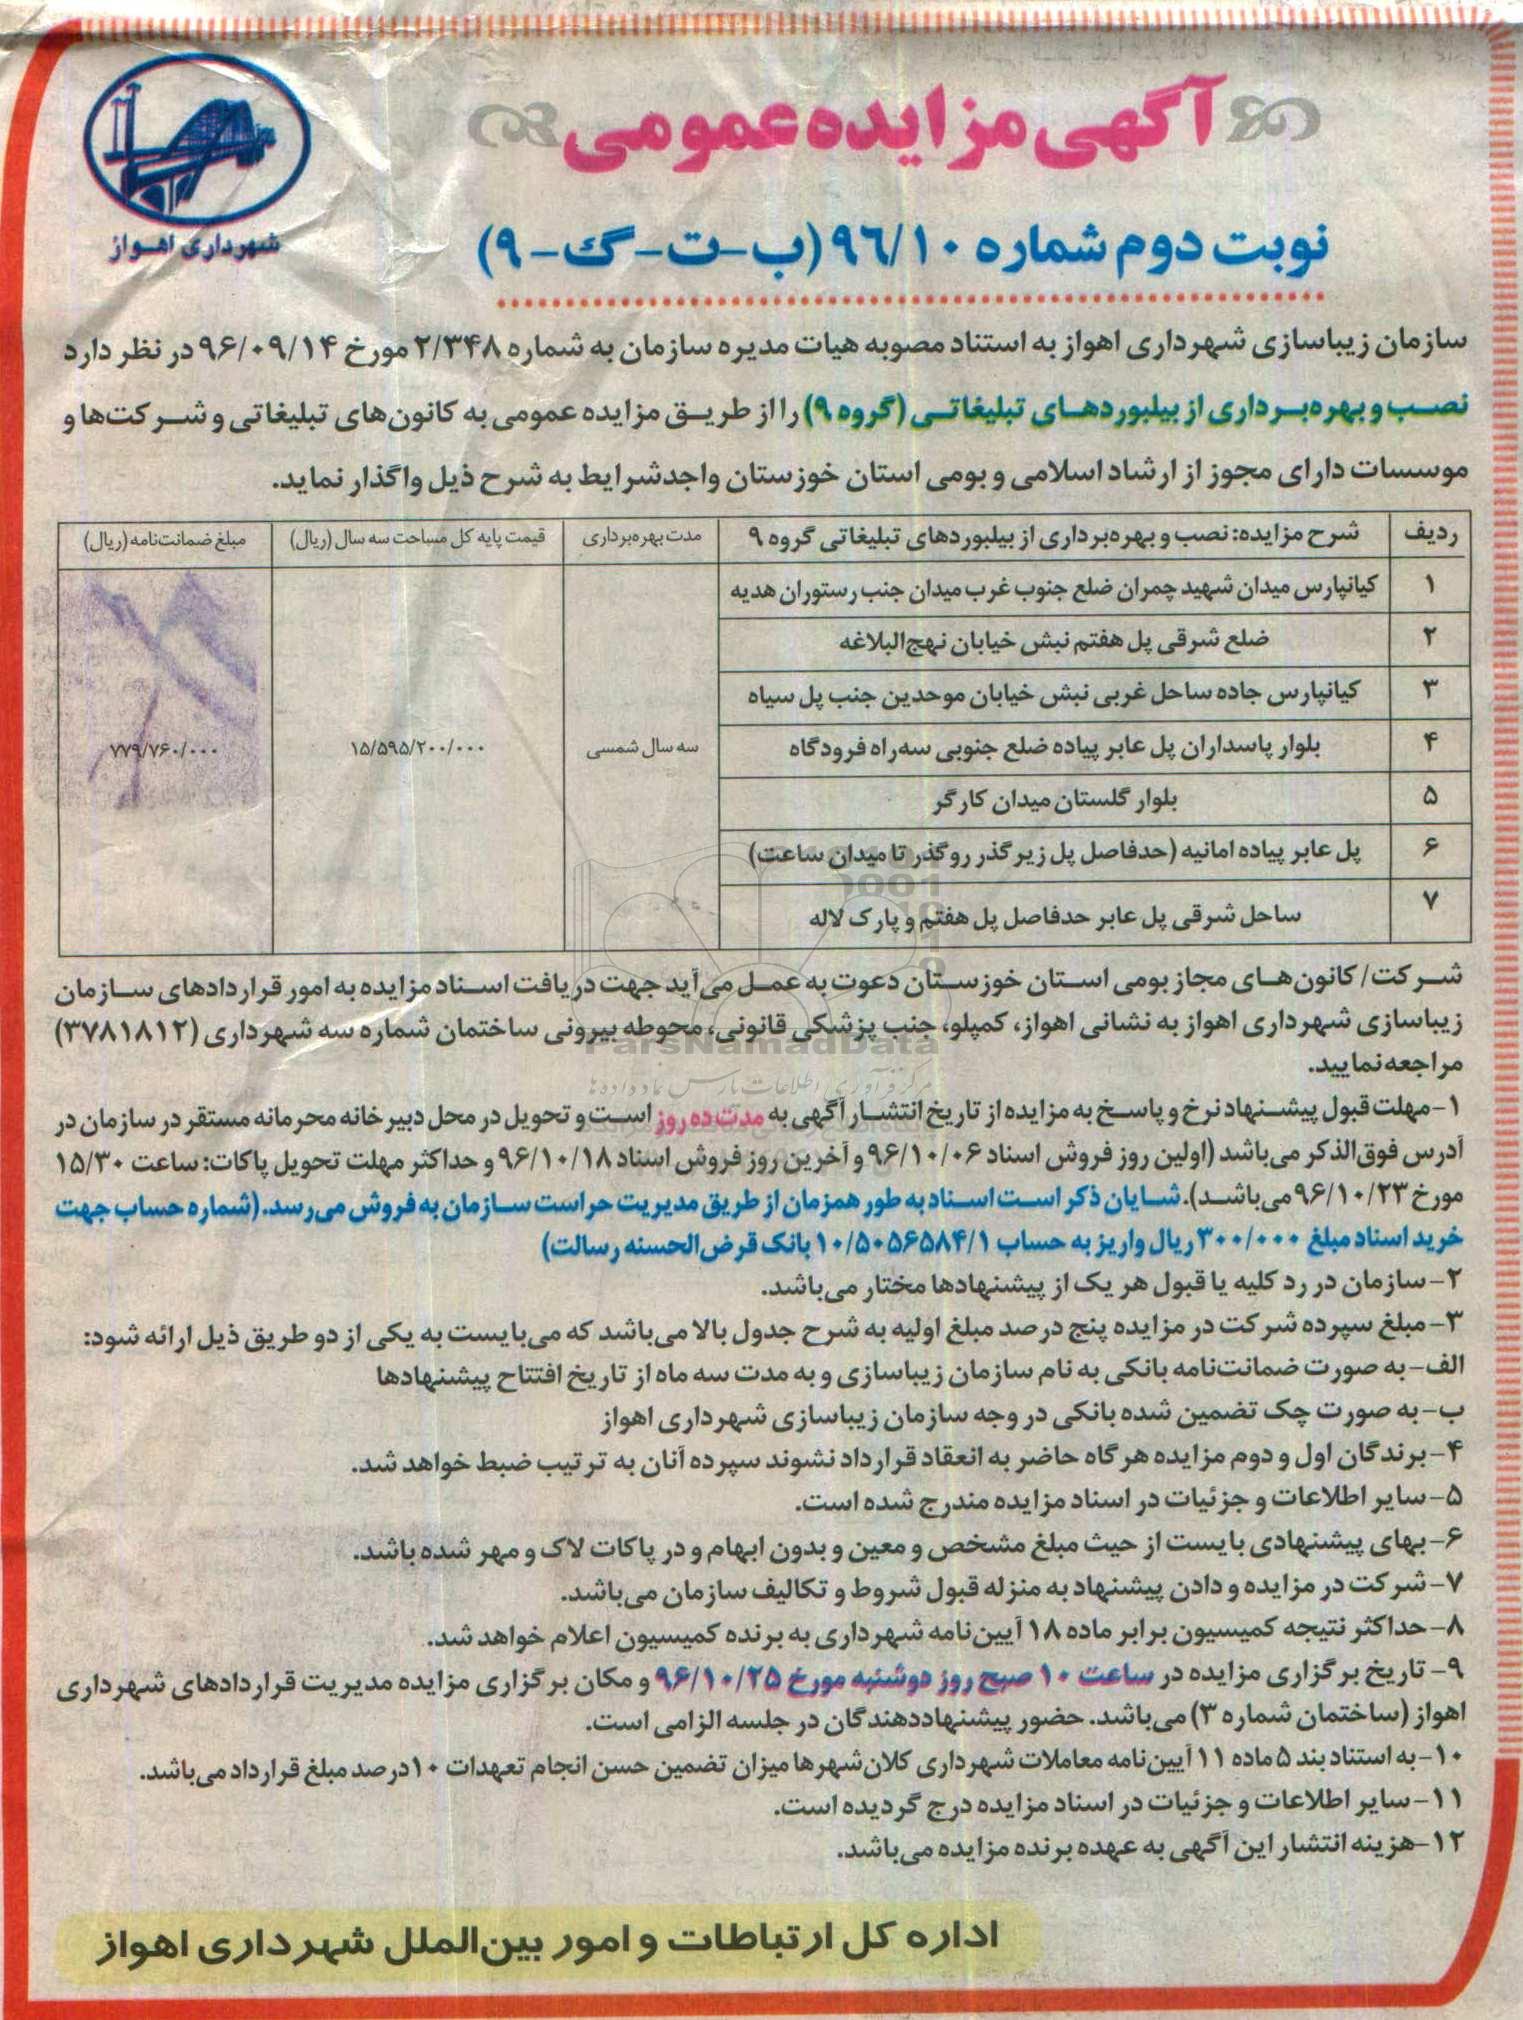 آگهی مزایده عمومی
شهرداری اهواز
نوبت دوم شماره ۹۶/۱۰ (ب-ت-گ-۹)
سازمان زیباسازی شهرداری اهواز به استناد مصوبه هیات مدیره سازمان به شماره ۲/۳۴۸ مورخ ۹۶/۰۹/۱۴ در نظر دارد
نصب و بهره‌برداری از بیلبوردهای تبلیغاتی (گروه ۹) را از طریق مزایده عمومی به کانون‌های تبلیغاتی و شرکت‌ها و
موسسات دارای مجوز از ارشاد اسلامی و بومی استان خوزستان واجدشرایط به شرح ذیل واگذار نماید.
ردیف شرح مزایده: نصب و بهره‌برداری از بیلبوردهای تبلیغاتی گروه ۹ مدت بهره‌برداری قیمت پایه کل مساحت سه سال (ریال) مبلغ ضمانت‌نامه (ریال)
۱ کیانپارس میدان شهید چمران ضلع جنوب غرب میدان جنب رستوران هدیه
۲ ضلع شرقی پل هفتم نبش خیابان نهج‌البلاغه
۳ کیانپارس جاده ساحل غربی نبش خیابان موحدین جنب پل سیاه
۴ بلوار پاسداران پل عابر پیاده ضلع جنوبی سه‌راه فرودگاه سه سال شمسی ۱۵/۵۹۵/۲۰۰/۰۰۰ ۷۷۹/۷۶۰/۰۰۰
۵ بلوار گلستان میدان کارگر
۶ پل عابر پیاده امانیه (حدفاصل پل زیرگذر روگذر تا میدان ساعت)
۷ ساحل شرقی پل عابر حدفاصل پل هفتم و پارک لاله
شرکت/ کانون‌های مجاز بومی استان خوزستان دعوت به عمل می‌آید جهت دریافت اسناد مزایده به امور قراردادهای سازمان
زیباسازی شهرداری اهواز به نشانی اهواز، کمپلو، جنب پزشکی قانونی، محوطه بیرونی ساختمان شماره سه شهرداری (۳۷۸۱۸۱۲)
مراجعه نمایید.
ParsNamadData
مرکز فرآوری اطلاعات پارس نماد داده‌ها
۱- مهلت قبول پیشنهاد نرخ و پاسخ به مزایده از تاریخ انتشار آگهی به مدت ده روز است و تحویل در محل دبیرخانه محرمانه مستقر در سازمان در
آدرس فوق‌الذکر می‌باشد (اولین روز فروش اسناد ۹۶/۱۰/۰۶ و آخرین روز فروش اسناد ۹۶/۱۰/۱۸ و حداکثر مهلت تحویل پاکات: ساعت ۱۵/۳۰
مورخ ۹۶/۱۰/۲۳ می‌باشد). شایان ذکر است اسناد به طور همزمان از طریق مدیریت حراست سازمان به فروش می‌رسد. (شماره حساب جهت
خرید اسناد مبلغ ۳۰۰/۰۰۰ ریال واریز به حساب ۱۰/۵۰۵۶۵۸۴/۱ بانک قرض‌الحسنه رسالت)
۲- سازمان در رد کلیه یا قبول هر یک از پیشنهادها مختار می‌باشد.
۳- مبلغ سپرده شرکت در مزایده پنج درصد مبلغ اولیه به شرح جدول بالا می‌باشد که می‌بایست به یکی از دو طریق ذیل ارائه شود:
الف- به صورت ضمانت‌نامه بانکی به نام سازمان زیباسازی و به مدت سه ماه از تاریخ افتتاح پیشنهادها
ب- به صورت چک تضمین شده بانکی در وجه سازمان زیباسازی شهرداری اهواز
۴- برندگان اول و دوم مزایده هرگاه حاضر به انعقاد قرارداد نشوند سپرده آنان به ترتیب ضبط خواهد شد.
۵- سایر اطلاعات و جزئیات در اسناد مزایده مندرج شده است.
۶- بهای پیشنهادی بایست از حیث مبلغ مشخص و معین و بدون ابهام و در پاکات لاک و مهر شده باشد.
۷- شرکت در مزایده و دادن پیشنهاد به منزله قبول شروط و تکالیف سازمان می‌باشد.
۸- حداکثر نتیجه کمیسیون برابر ماده ۱۸ آیین‌نامه شهرداری به برنده کمیسیون اعلام خواهد شد.
۹- تاریخ برگزاری مزایده در ساعت ۱۰ صبح روز دوشنبه مورخ ۹۶/۱۰/۲۵ و مکان برگزاری مزایده مدیریت قراردادهای شهرداری
اهواز (ساختمان شماره ۳) می‌باشد. حضور پیشنهاددهندگان در جلسه الزامی است.
۱۰- به استناد بند ۵ ماده ۱۱ آیین‌نامه معاملات شهرداری کلان‌شهرها میزان تضمین حسن انجام تعهدات ۱۰ درصد مبلغ قرارداد می‌باشد.
۱۱- سایر اطلاعات و جزئیات در اسناد مزایده درج گردیده است.
۱۲- هزینه انتشار این آگهی به عهده برنده مزایده می‌باشد.
اداره کل ارتباطات و امور بین‌الملل شهرداری اهواز